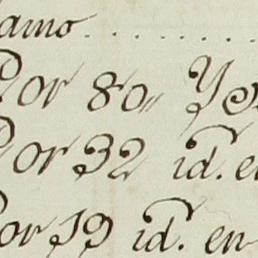 amo..........
Por 80,, Ye
Por 32 id. en
Por 19 id. en